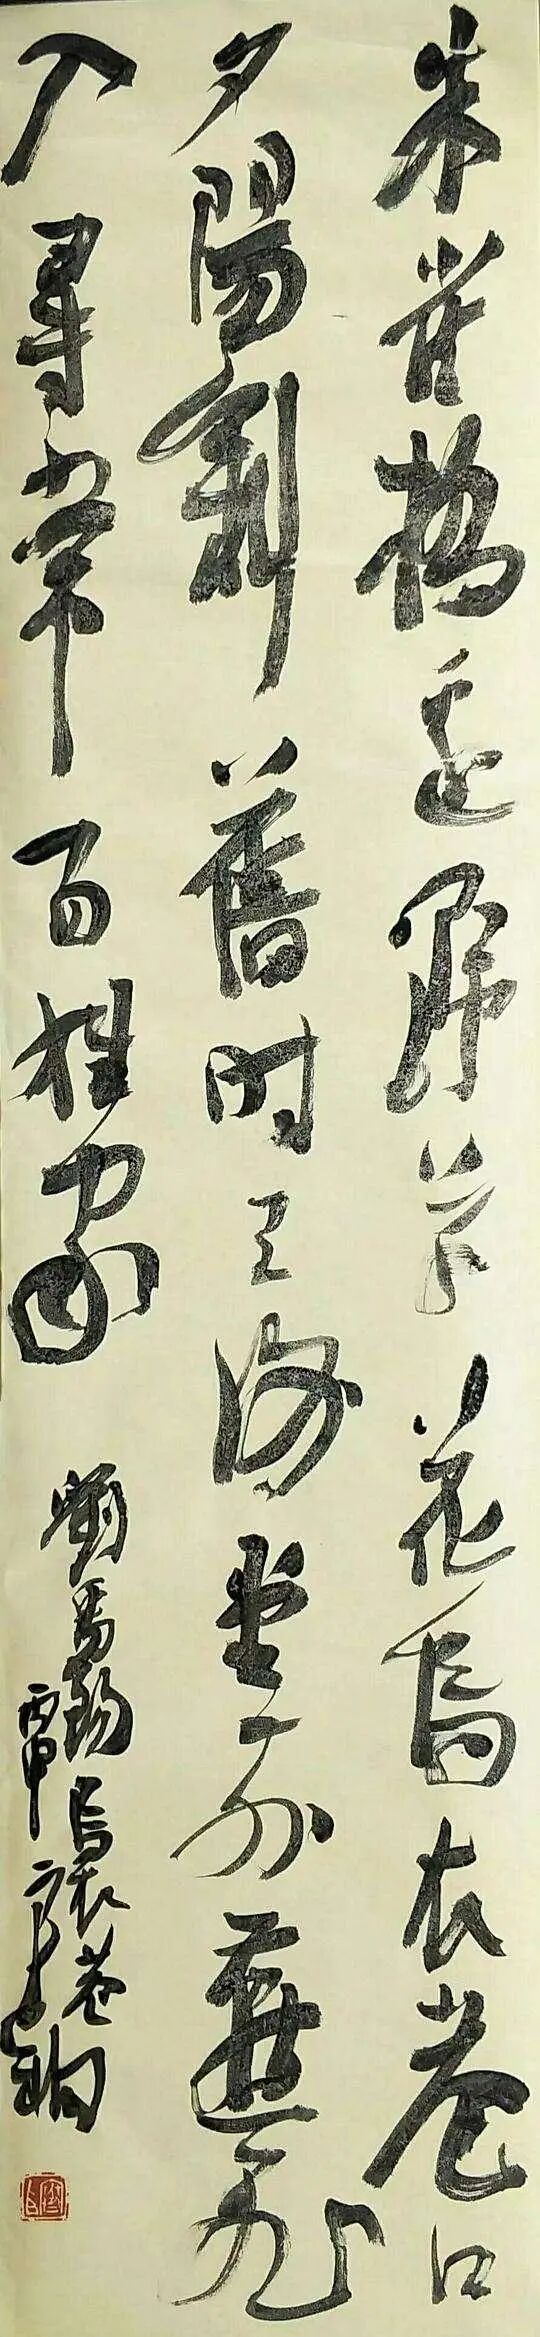 朱雀橋邊野草花烏衣巷口
夕陽斜舊時王謝堂前燕飛
入尋常百姓家
劉禹錫烏衣巷
丙申